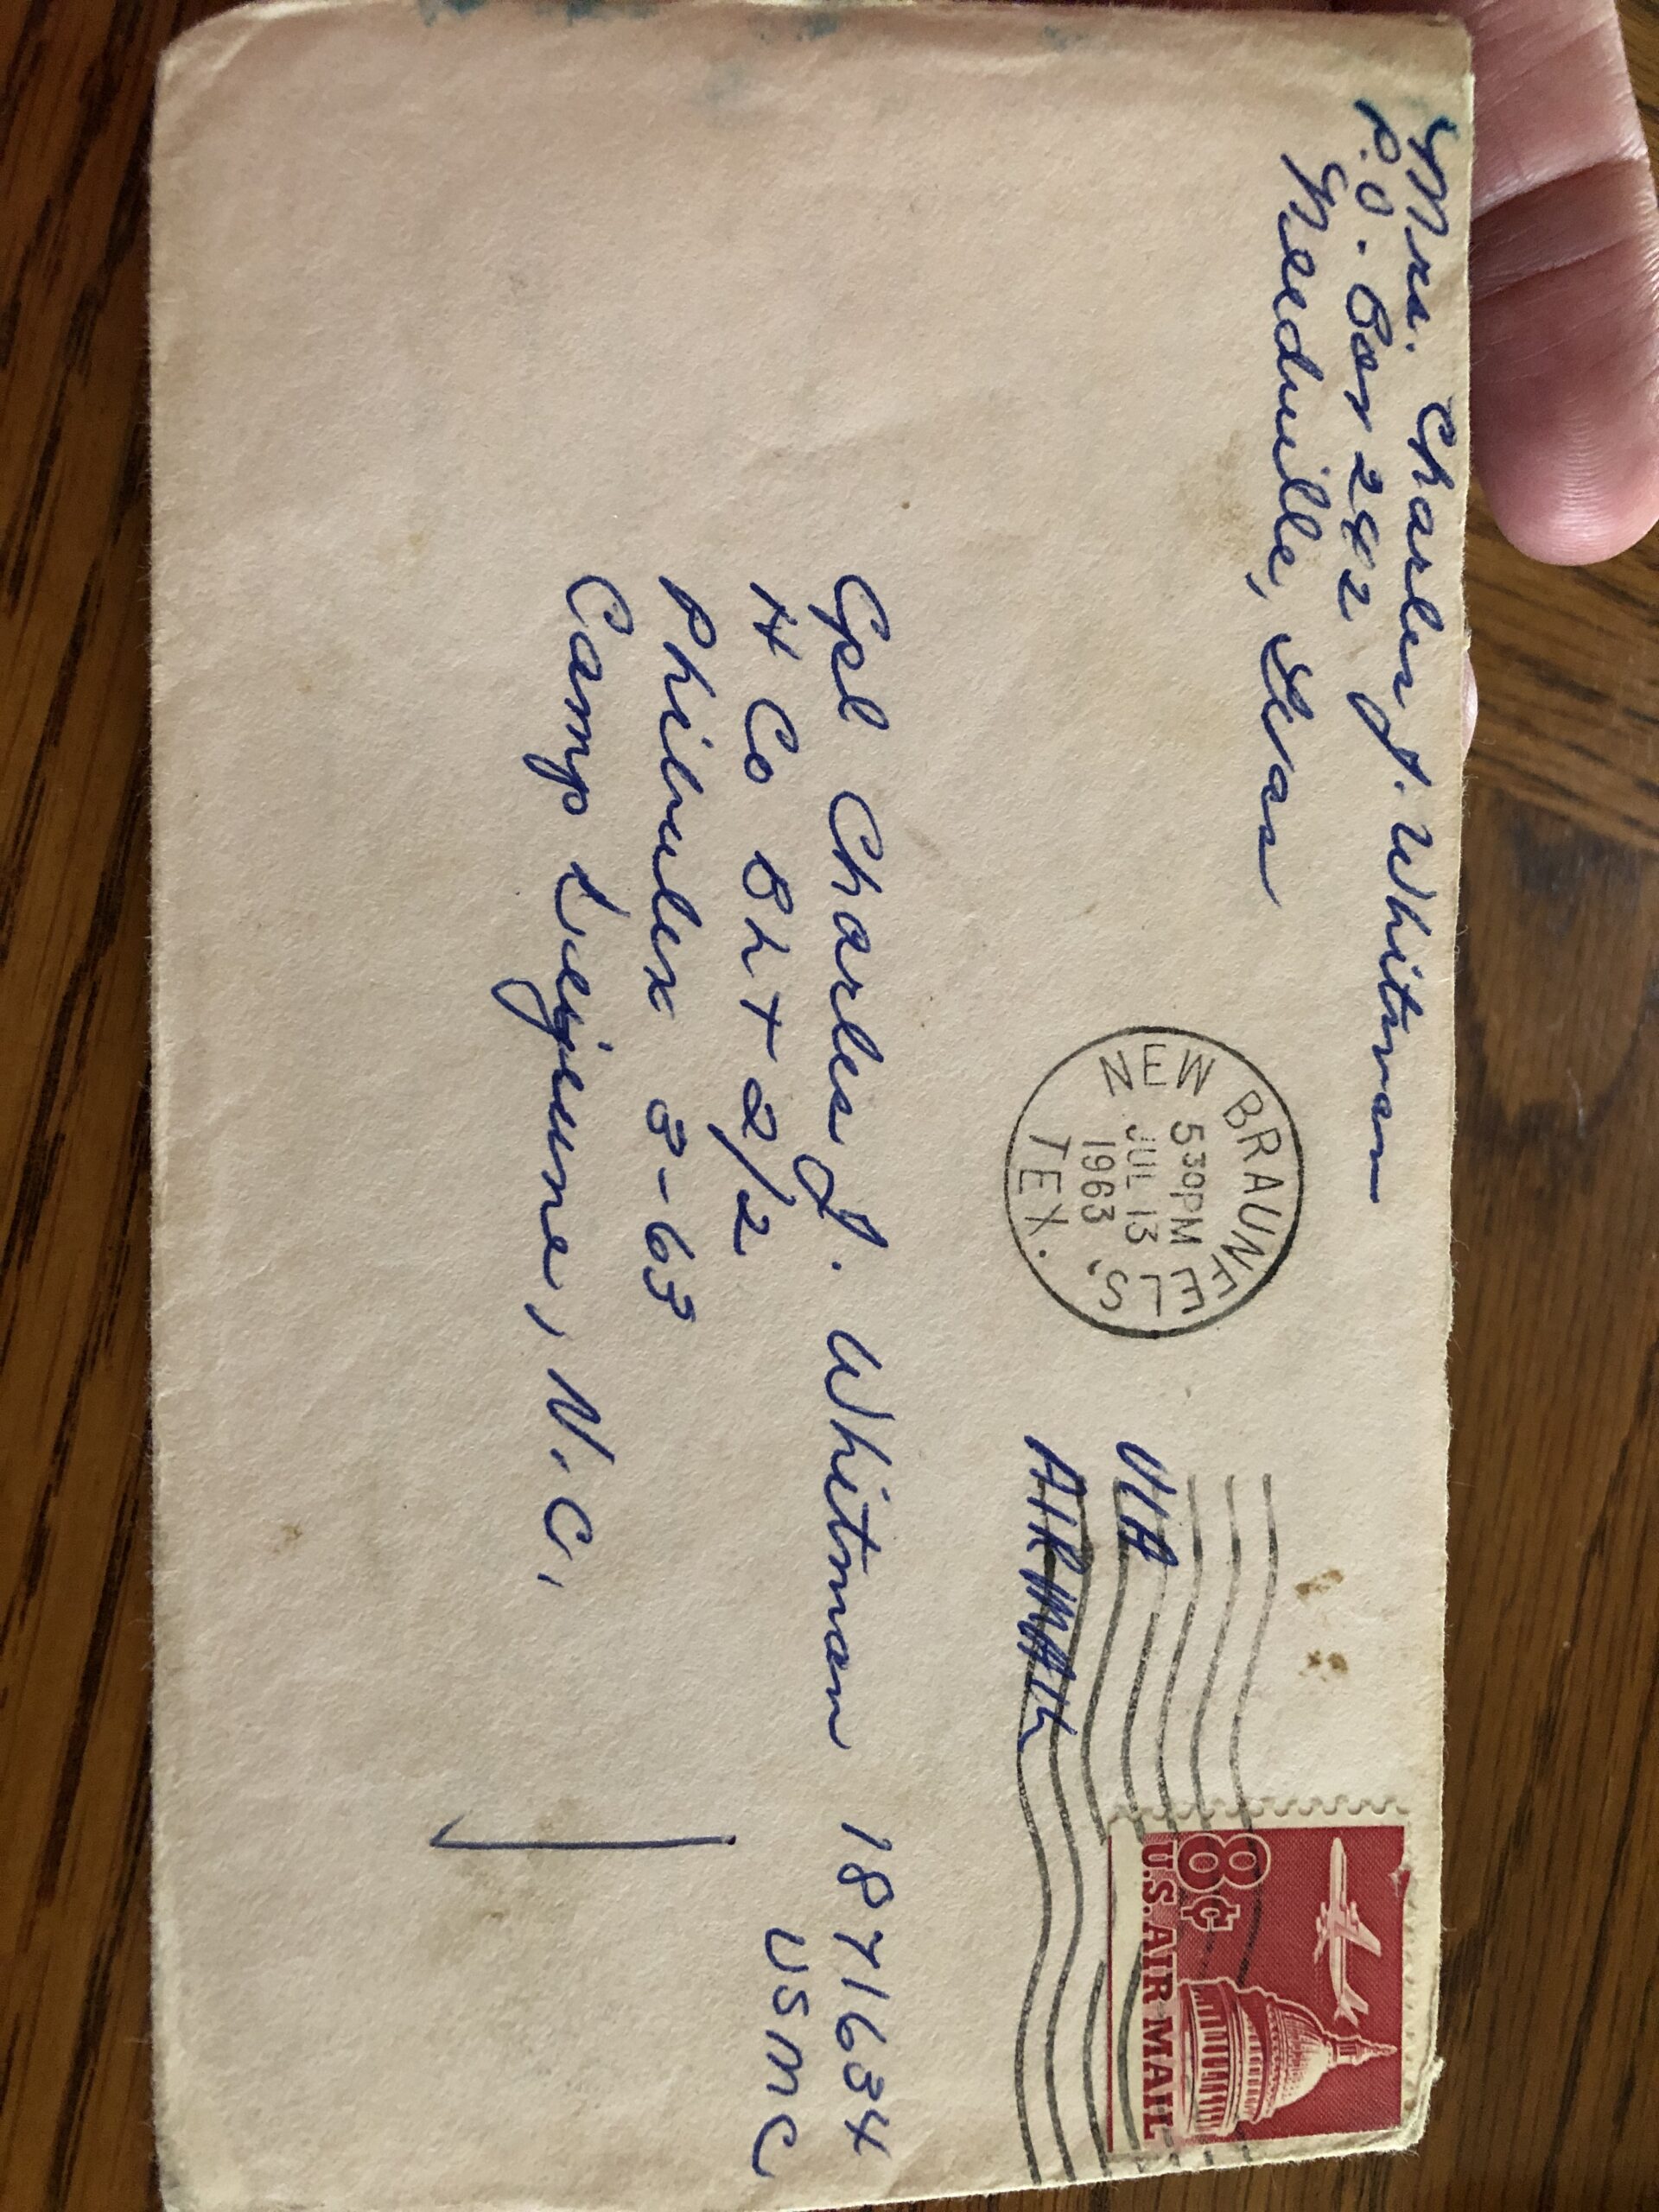 Mrs. Charles J. Whitman
P.O. Box 242
Needville, Texas
NEW BRAUNFELS,
530PM
JUL 13
1963
TEX.
VIA
AIRMAIL
8¢
U.S. AIR MAIL
Cpl Charles J. Whitman 1871634
H Co BLT 2/2 USMC
Phibulex 3-63
Camp Lejeune, N.C.